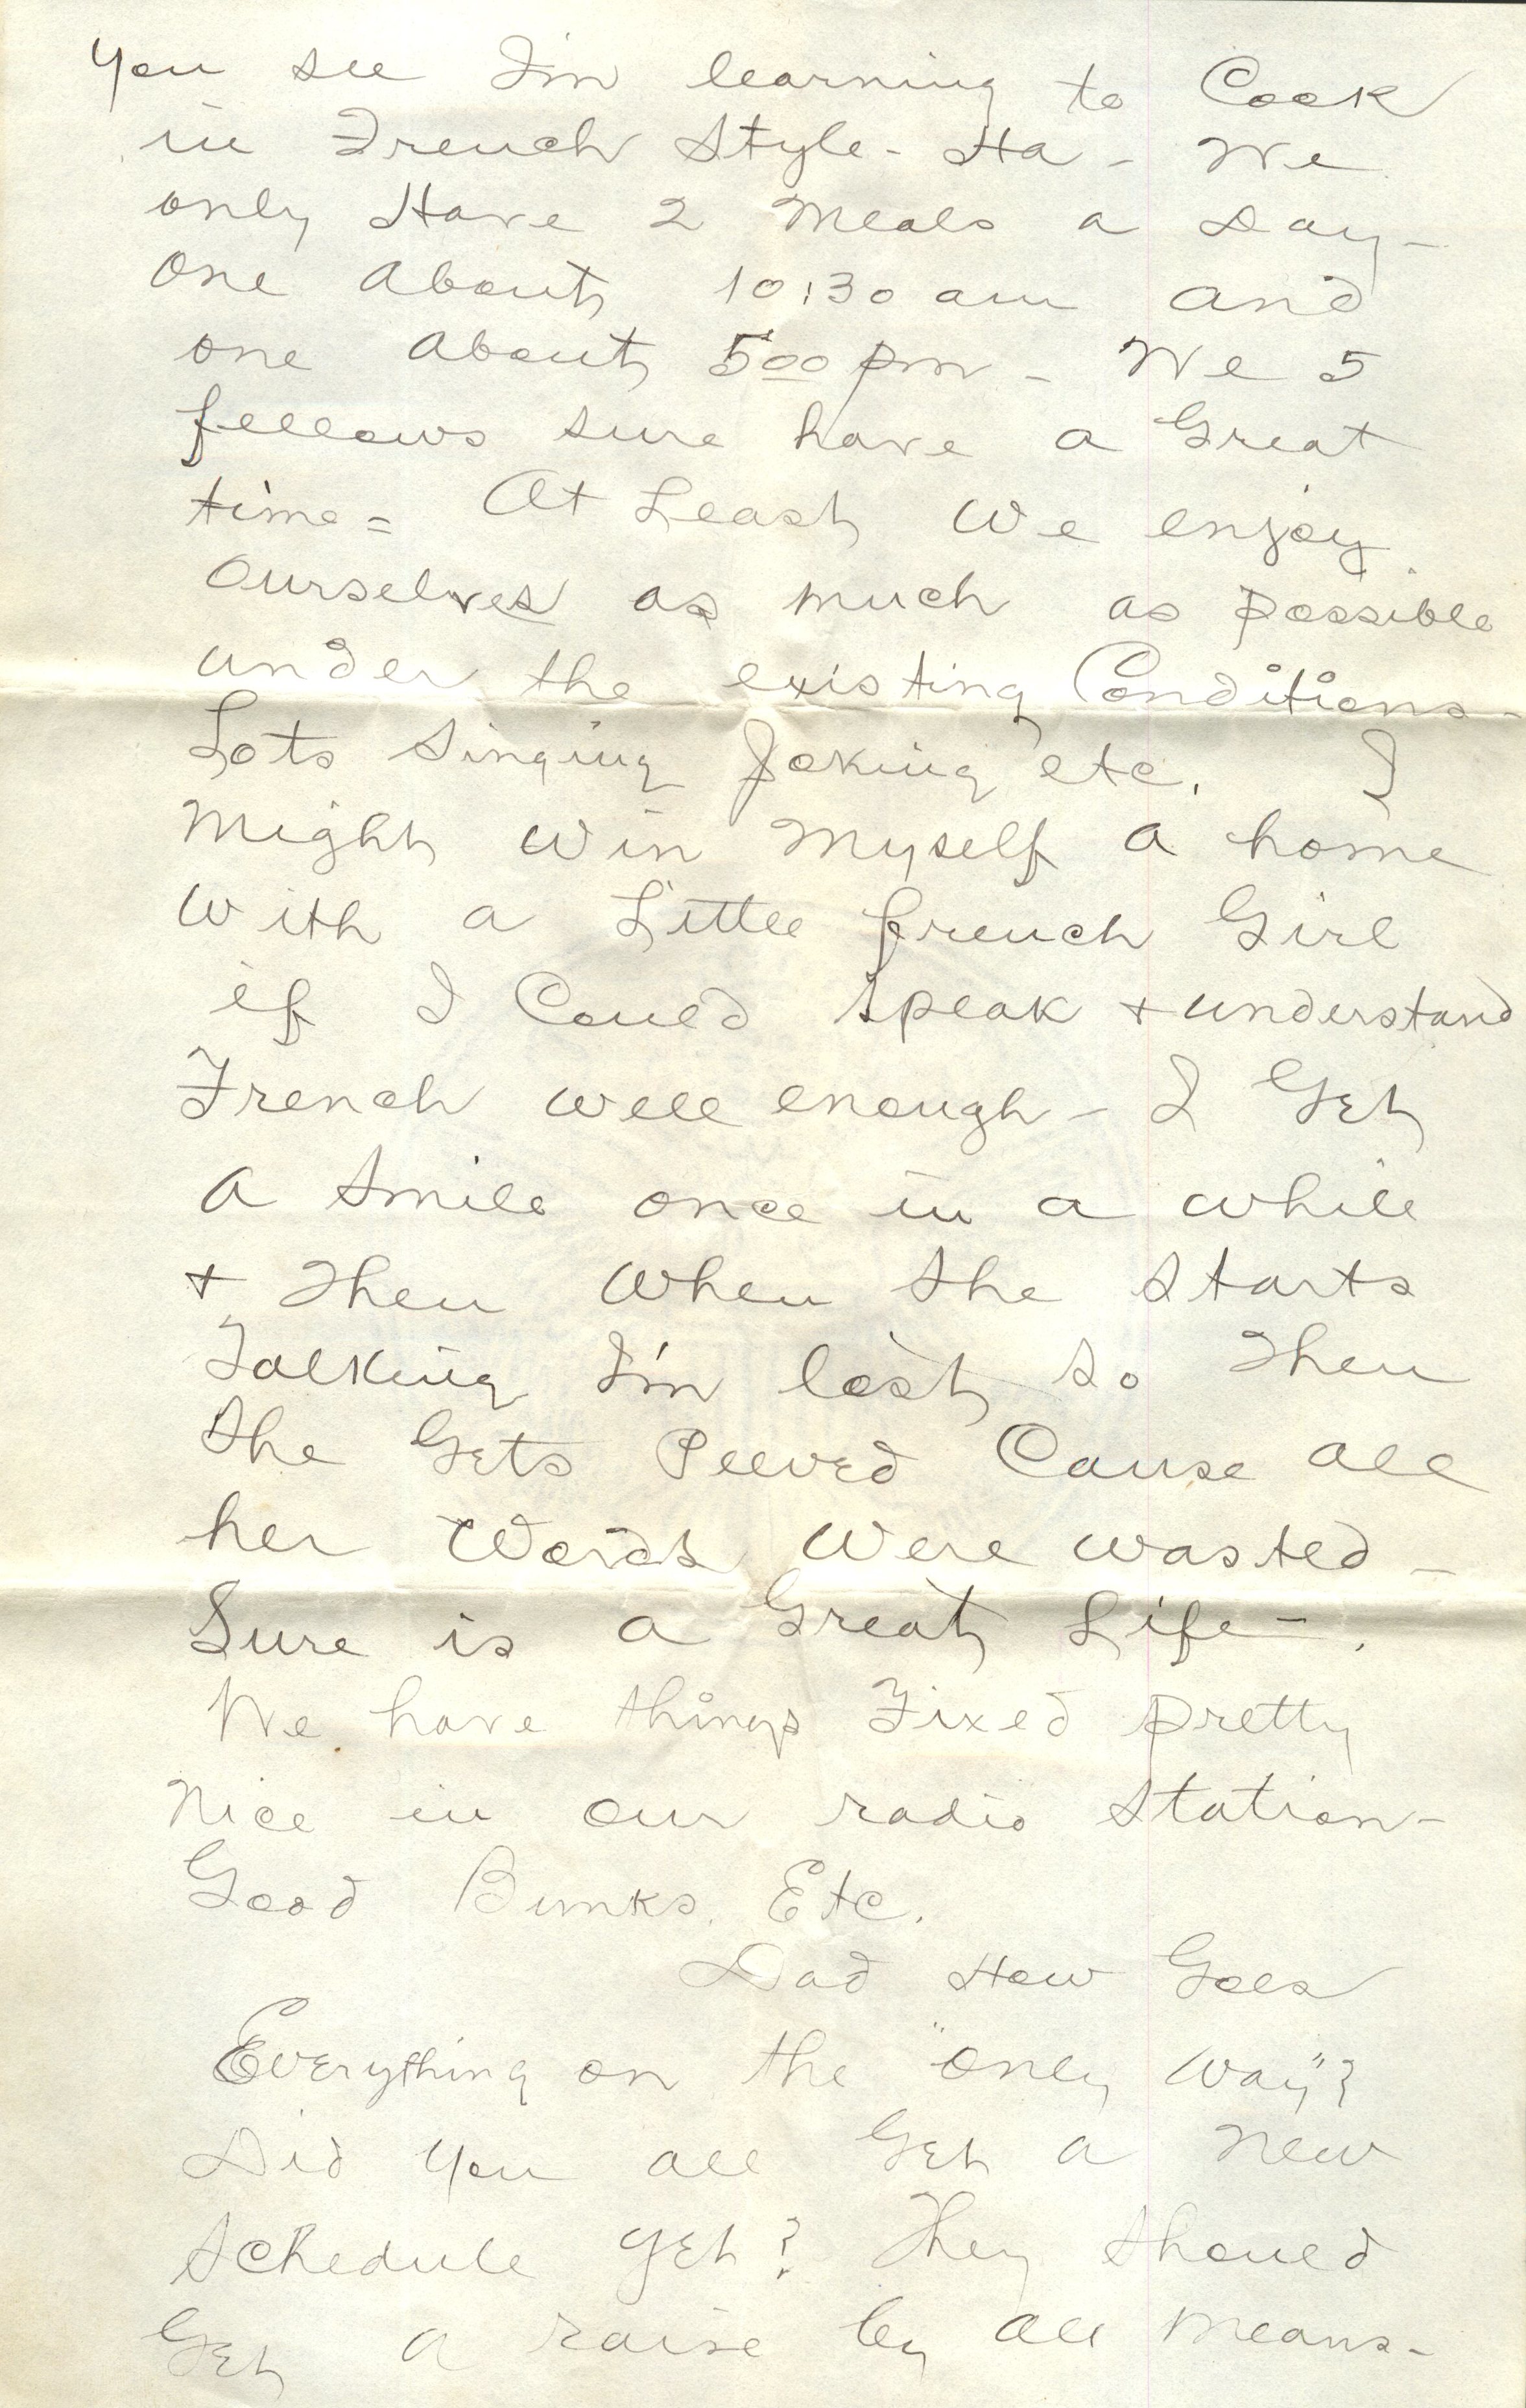 You see I'm learning to Cook
in French Style - Ha - We
only Have 2 Meals a Day -
One About 10:30 am and
one About 5:00 pm - We 5
fellows sure have a Great
time = At Least We enjoy
Ourselves as much as possible
under the existing Conditions -
Lots Singing Joking etc. I
Might Win Myself a home
With a Little french Girl
if I Could Speak + understand
French well enough - I Get
A Smile once in a while
+ Then When She Starts
Talking I'm lost so Then
She Gets Peeved Cause all
her Words Were wasted -
Sure is a Great Life - .
We have things Fixed pretty
Nice in our radio Station -
Good Bunks, Etc.
Dad How Goes
Everything on the "only way"?
Did You all Get a New
Schedule yet? They Should
Get a raise by all Means -